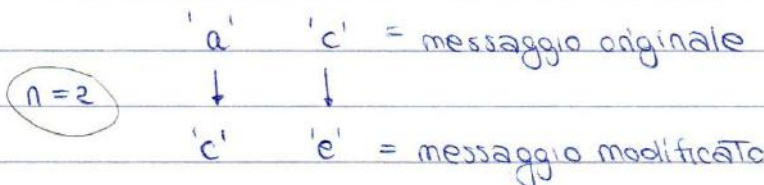 'a' 'c' = messaggio originale
n=2
'c' 'e' = messaggio modificato